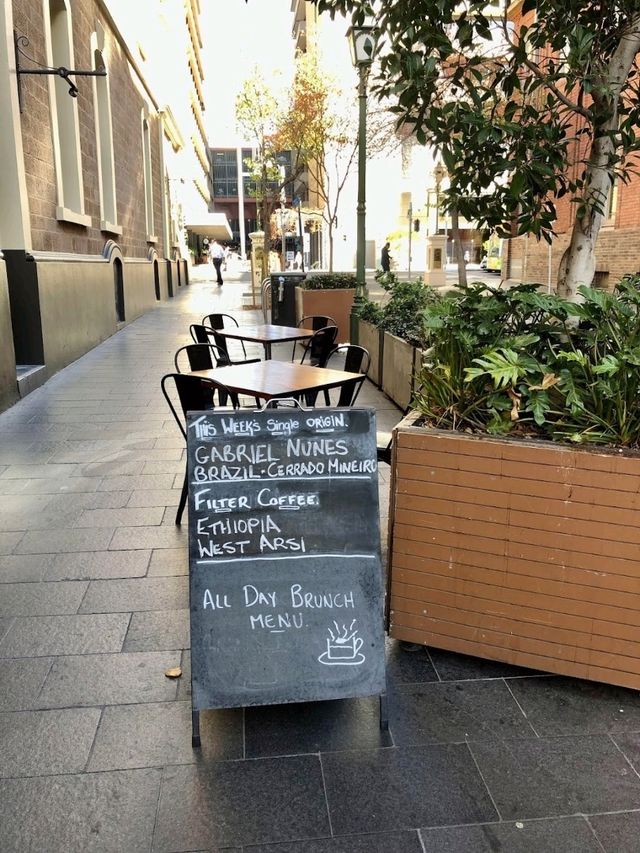 THIS WEEK'S SINGLE ORIGIN.
GABRIEL NUNES
BRAZIL · CERRADO MINEIRO
FILTER COFFEE.
ETHIOPIA
WEST ARSI
ALL DAY BRUNCH
MENU.